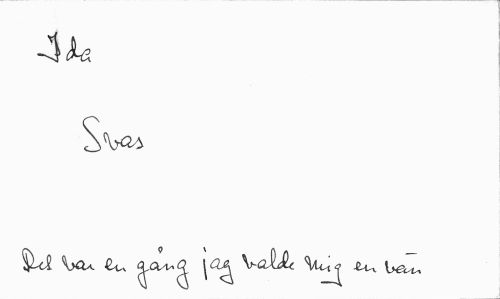 Ida
Svas
Det var en gång jag valde mig en vän